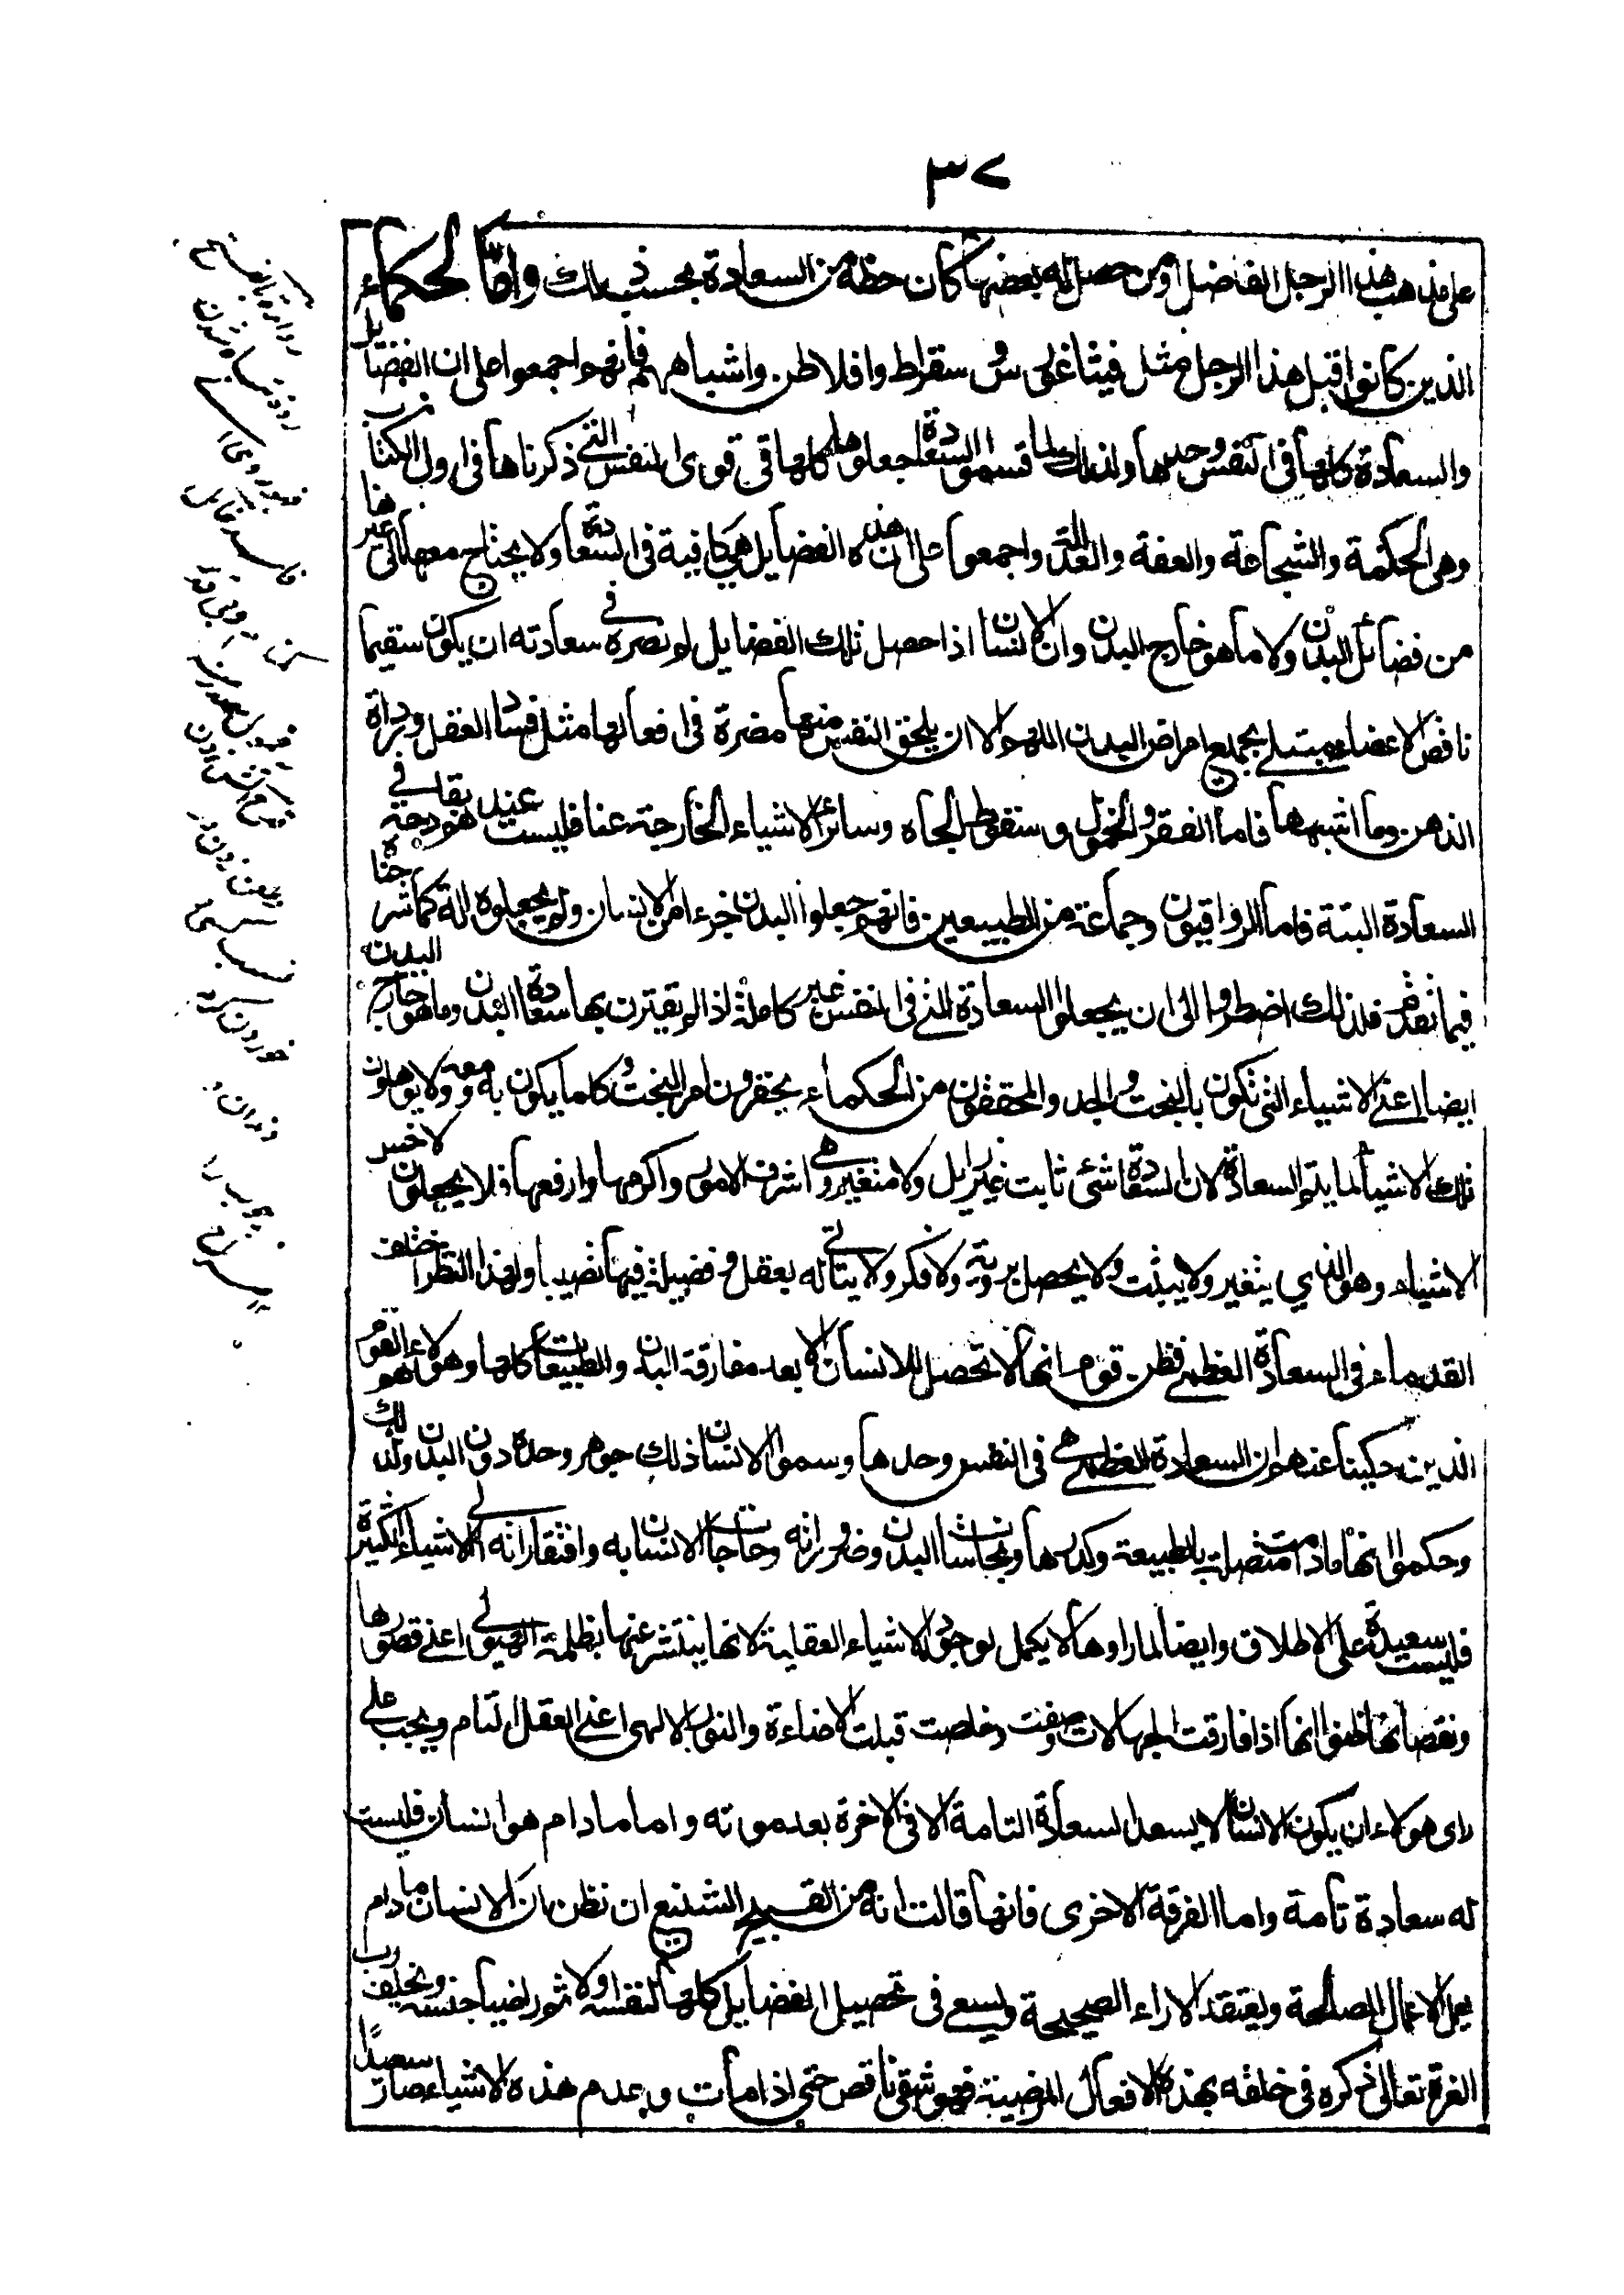 ٣٧
على مذهب هذا الرجل الفاضل ومن حصل له بعضها كان حظه من السعادة بحسب ذلك واما الحكماء
الذين كانوا قبل هذا الرجل مثل فيثاغورس وسقراط وافلاطن واشباههم فانهم اجمعوا على ان الفضايل
والسعادة كلها فى النفس وحدها ولذلك لما قسموا السعادة جعلوها كلها فى قوى النفس التى ذكرناها فى اول الكتاب
وهى الحكمة والشجاعة والعفة والعدالة واجمعوا على ان هذه الفضايل هى كافية فى السعادة ولا يحتاج معها الى غيرها
من فضائل البدن ولا ما هو خارج البدن وان الانسان اذا حصل تلك الفضايل لم يضره فى سعادته ان يكون سقيما
ناقص الاعضاء مبتلى بجميع امراض البدن اللهم الا ان يلحق النفس منها مضرة فى افعالها مثل فساد العقل ورداءة
الذهن وما اشبهها فاما الفقر والخمول وسقوط الجاه وسائر الاشياء الخارجة عنا فليست عندهم بقادحة فى
السعادة البتة فاما الرواقيون وجماعة من الطبيعين فانهم جعلوا البدن جزءا من الانسان ولم يجعلوه الة كما شرحنا
فيما تقدم فلذلك اضطروا الى ان يجعلوا السعادة التى فى النفس غير كاملة اذا لم يقترن بها سعادة البدن وما هو خارج البدن
ايضا اعنى الاشياء التى تكون بالبخت والجد والمحققون من الحكماء يحقرون امر البخت وكلما يكون به ومعه ولا يؤهلون
تلك الاشياء لما يتم السعادة لان السعادة شئ ثابت غير زايل ولا متغير وهى اشرف الامور واكرمها وارفعها فلا يجعلون لاخس
الاشياء وهو الذي يتغير ولا يثبت ولا يحصل بروية ولا فكر ولا يتاتى له بعقل وفضيلة فيها نصيبا ولهذا النظر اختلف
القدماء فى السعادة العظمى فظن قوم انها لا تحصل للانسان الا بعد مفارقة البدن والطبيعات كلها وهؤلاء القوم هم
الذين حكينا عنهم ان السعادة العظمى هى فى النفس وحدها وسموا الانسان ذلك جوهر وحده دون البدن ولذلك
وحكموا انها ما دامت متصلة بالطبيعة وكدرها ونجاسات البدن وضروراته وحاجات الانسان به وافتقاراته الى الاشياء الكثيرة
فليست سعيدة على الاطلاق وايضا لما راوها لا يكمل لوجود الاشياء العقلية لانها يستتر عنها بظلمة الهيولى اعنى قصورها
ونقصانها ظنوا انها اذا فارقت الجهالات صفت وخلصت قبلت الاضاءة والنور الالهى اعنى العقل التام ويجب على
راى هولاء ان يكون الانسان لا يسعد السعادة التامة الا فى الاخرة بعد موته واما ما دام هو انسان فليست
له سعادة تامة واما الفرقة الاخرى فانها قالت انه من القبيح الشنيع ان نظن ان الانسان ما دام
يعمل الاعمال الصالحة ويعتقد الاراء الصحيحة ويسعى فى تحصيل الفضايل كلها لنفسه اولا ثم لابناء جنسه ويخلف رب
العزة تعالى ذكره فى خلقه بهذه الافعال المرضية فهو شقى ناقص حتى اذا مات وعدم هذه الاشياء صار سعيدا